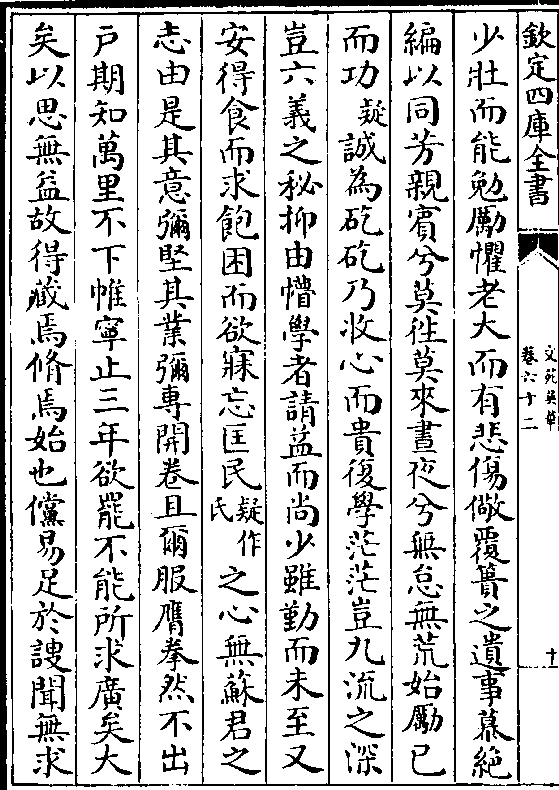 欽定四庫全書
文苑英華
卷六十二
十
少壯而能勉勵懼老大而有悲傷儆覆簣之遺事慕絶
編以同芳親賓兮莫徃莫來晝夜兮無怠無荒始勵已
而功疑誠為矻矻乃收心而貴復學茫茫豈九流之深
豈六義之秘抑由懵學者請益而尚少雖勤而未至又
安得食而求飽困而欲寐忘匡民疑作氏之心無蘇君之
志由是其意彌堅其業彌專開卷且爾服膺拳然不出
戸期知萬里不下帷寧止三年欲罷不能所求廣矣大
矣以思無益故得藏焉脩焉始也儻易足於謏聞無求